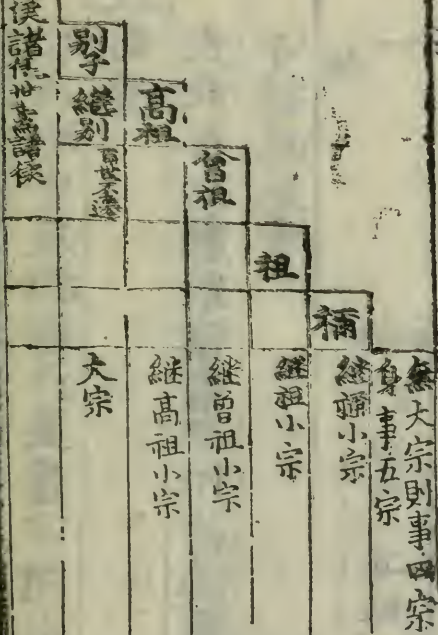 無大宗則事四宗
身事五宗
禰
繼禰小宗
祖
繼祖小宗
曾祖
繼曾祖小宗
高祖
継高祖小宗
別子
繼別
百世不遷
大宗
侯
諸侯世爲諸侯